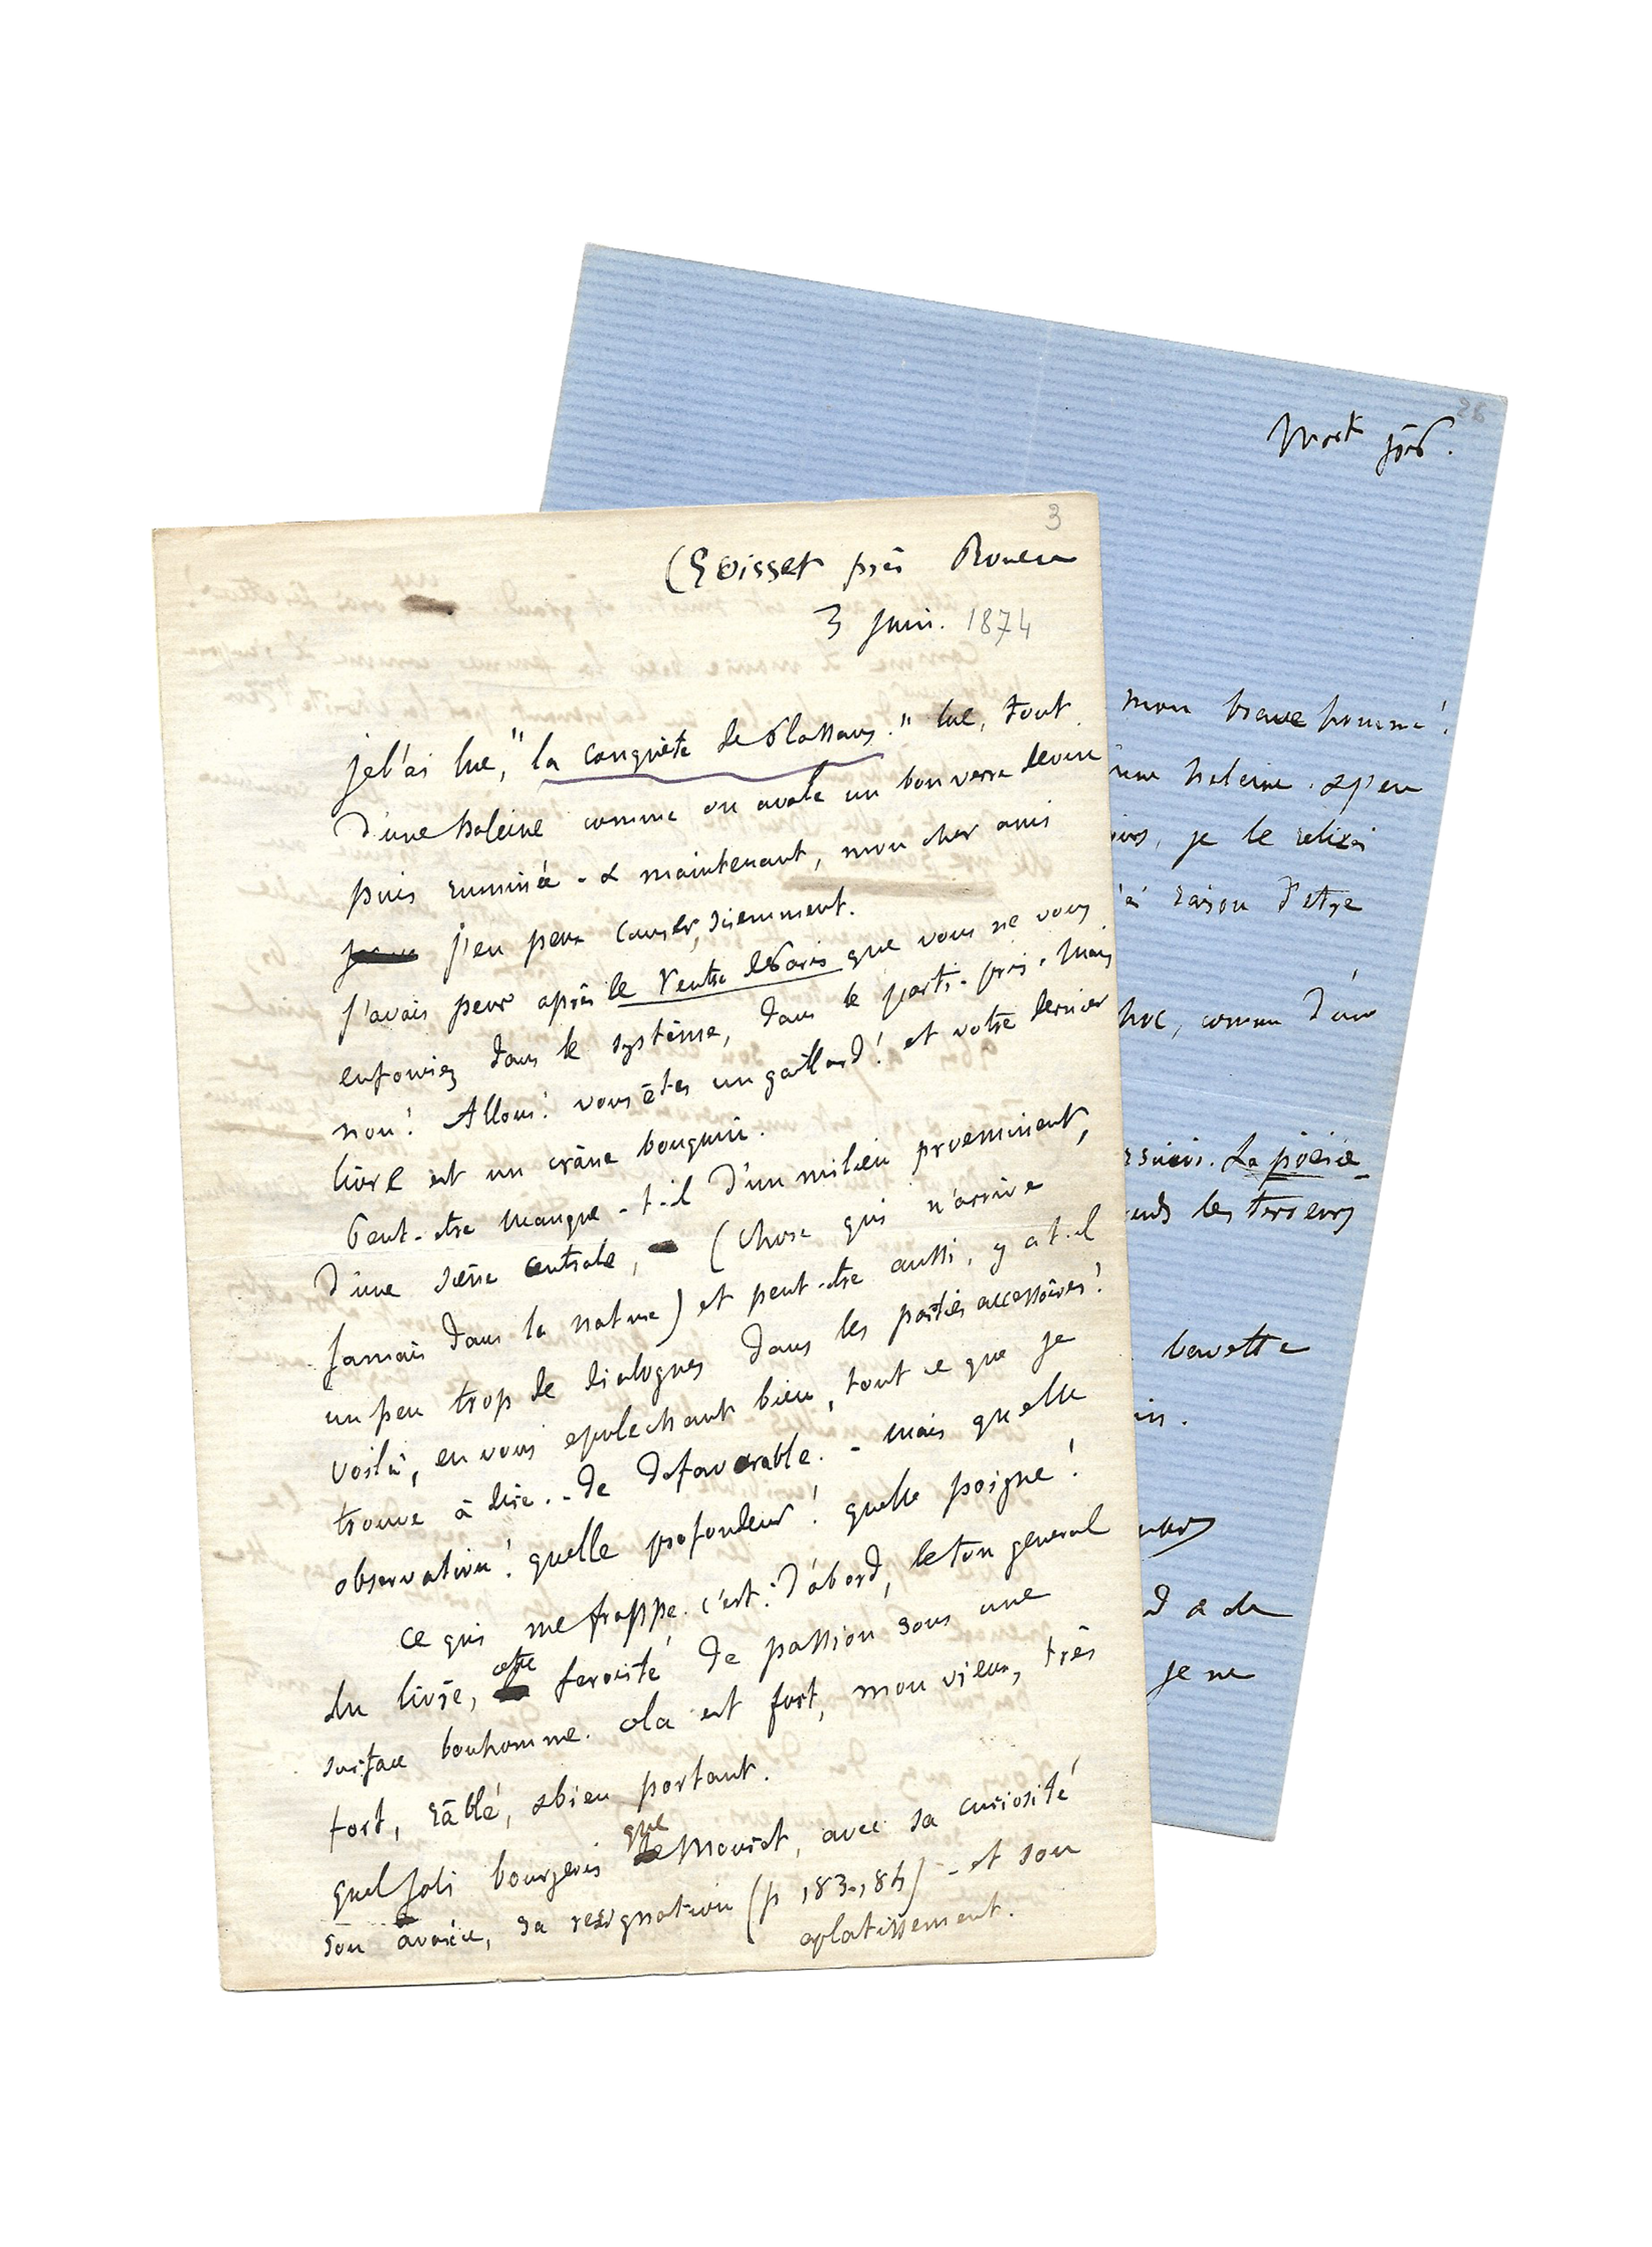 3
(Croisset près Rouen
3 juin. 1874
je l'ai lue, "la conquête de Plassans." lue, tout
d'une haleine comme on avale un bon verre de vin
puis ruminée - & maintenant, mon cher ami
j'en peux causer, sciemment.
J'avais peur après le Ventre de Paris que vous ne vous
enfouriez dans le système, dans le parti-pris. Mais
non! Allons! vous êtes un gaillard! et votre dernier
livre est un crâne bouquin.
Peut-être manque-t-il d'un milieu proeminent,
d'une scène centrale, (chose qui n'arrive
jamais dans la nature) et peut-être aussi, y a t-il
un peu trop de dialogues dans les parties accessoires!
voilà, en vous epulechant bien, tout ce que je
trouve à dire.. de defavorable. - Mais quelle
observation! quelle profondeur! quelle poigne!
ce qui me frappe. c'est: d'abord, le ton general
du livre, cette ferocité de passion sous une
surface bonhomme. cela est fort, mon vieux, très
fort, râblé, & bien portant.
quel joli bourgeois que Mouret, avec sa curiosité
son avarice, sa resignation (p 183-184) - et son
aplatissement.
28
mon brave
haleine. & j'en
je le relirai
raison d'etre
comme d'un
La poésie
les terreurs
bavette
je ne